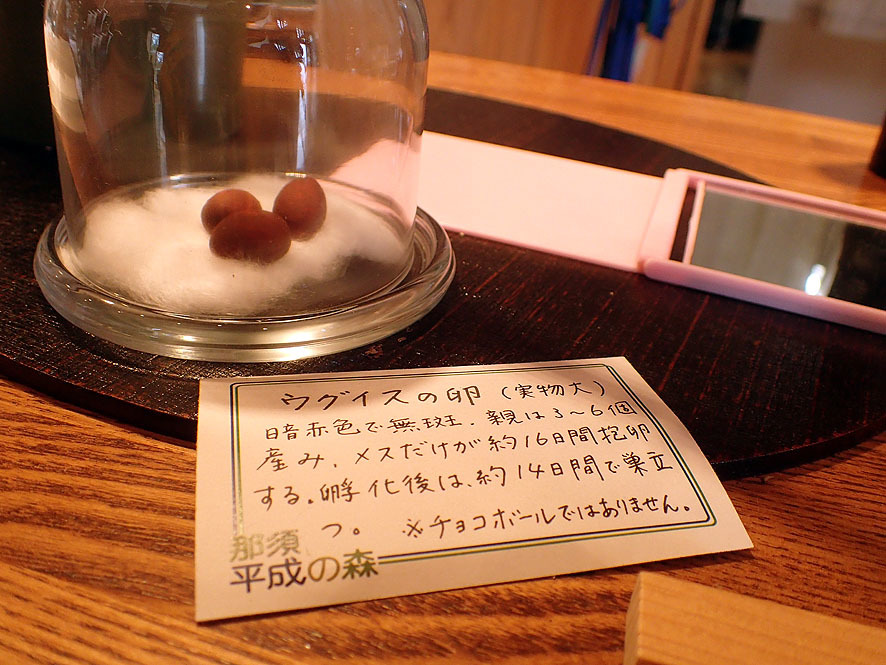 ウグイスの卵（実物大）
暗赤色で無斑。親は3〜6個
産み、メスだけが約16日間抱卵
する。孵化後は、約14日間で巣立
つ。 ※チョコボールではありません。
那須
平成の森